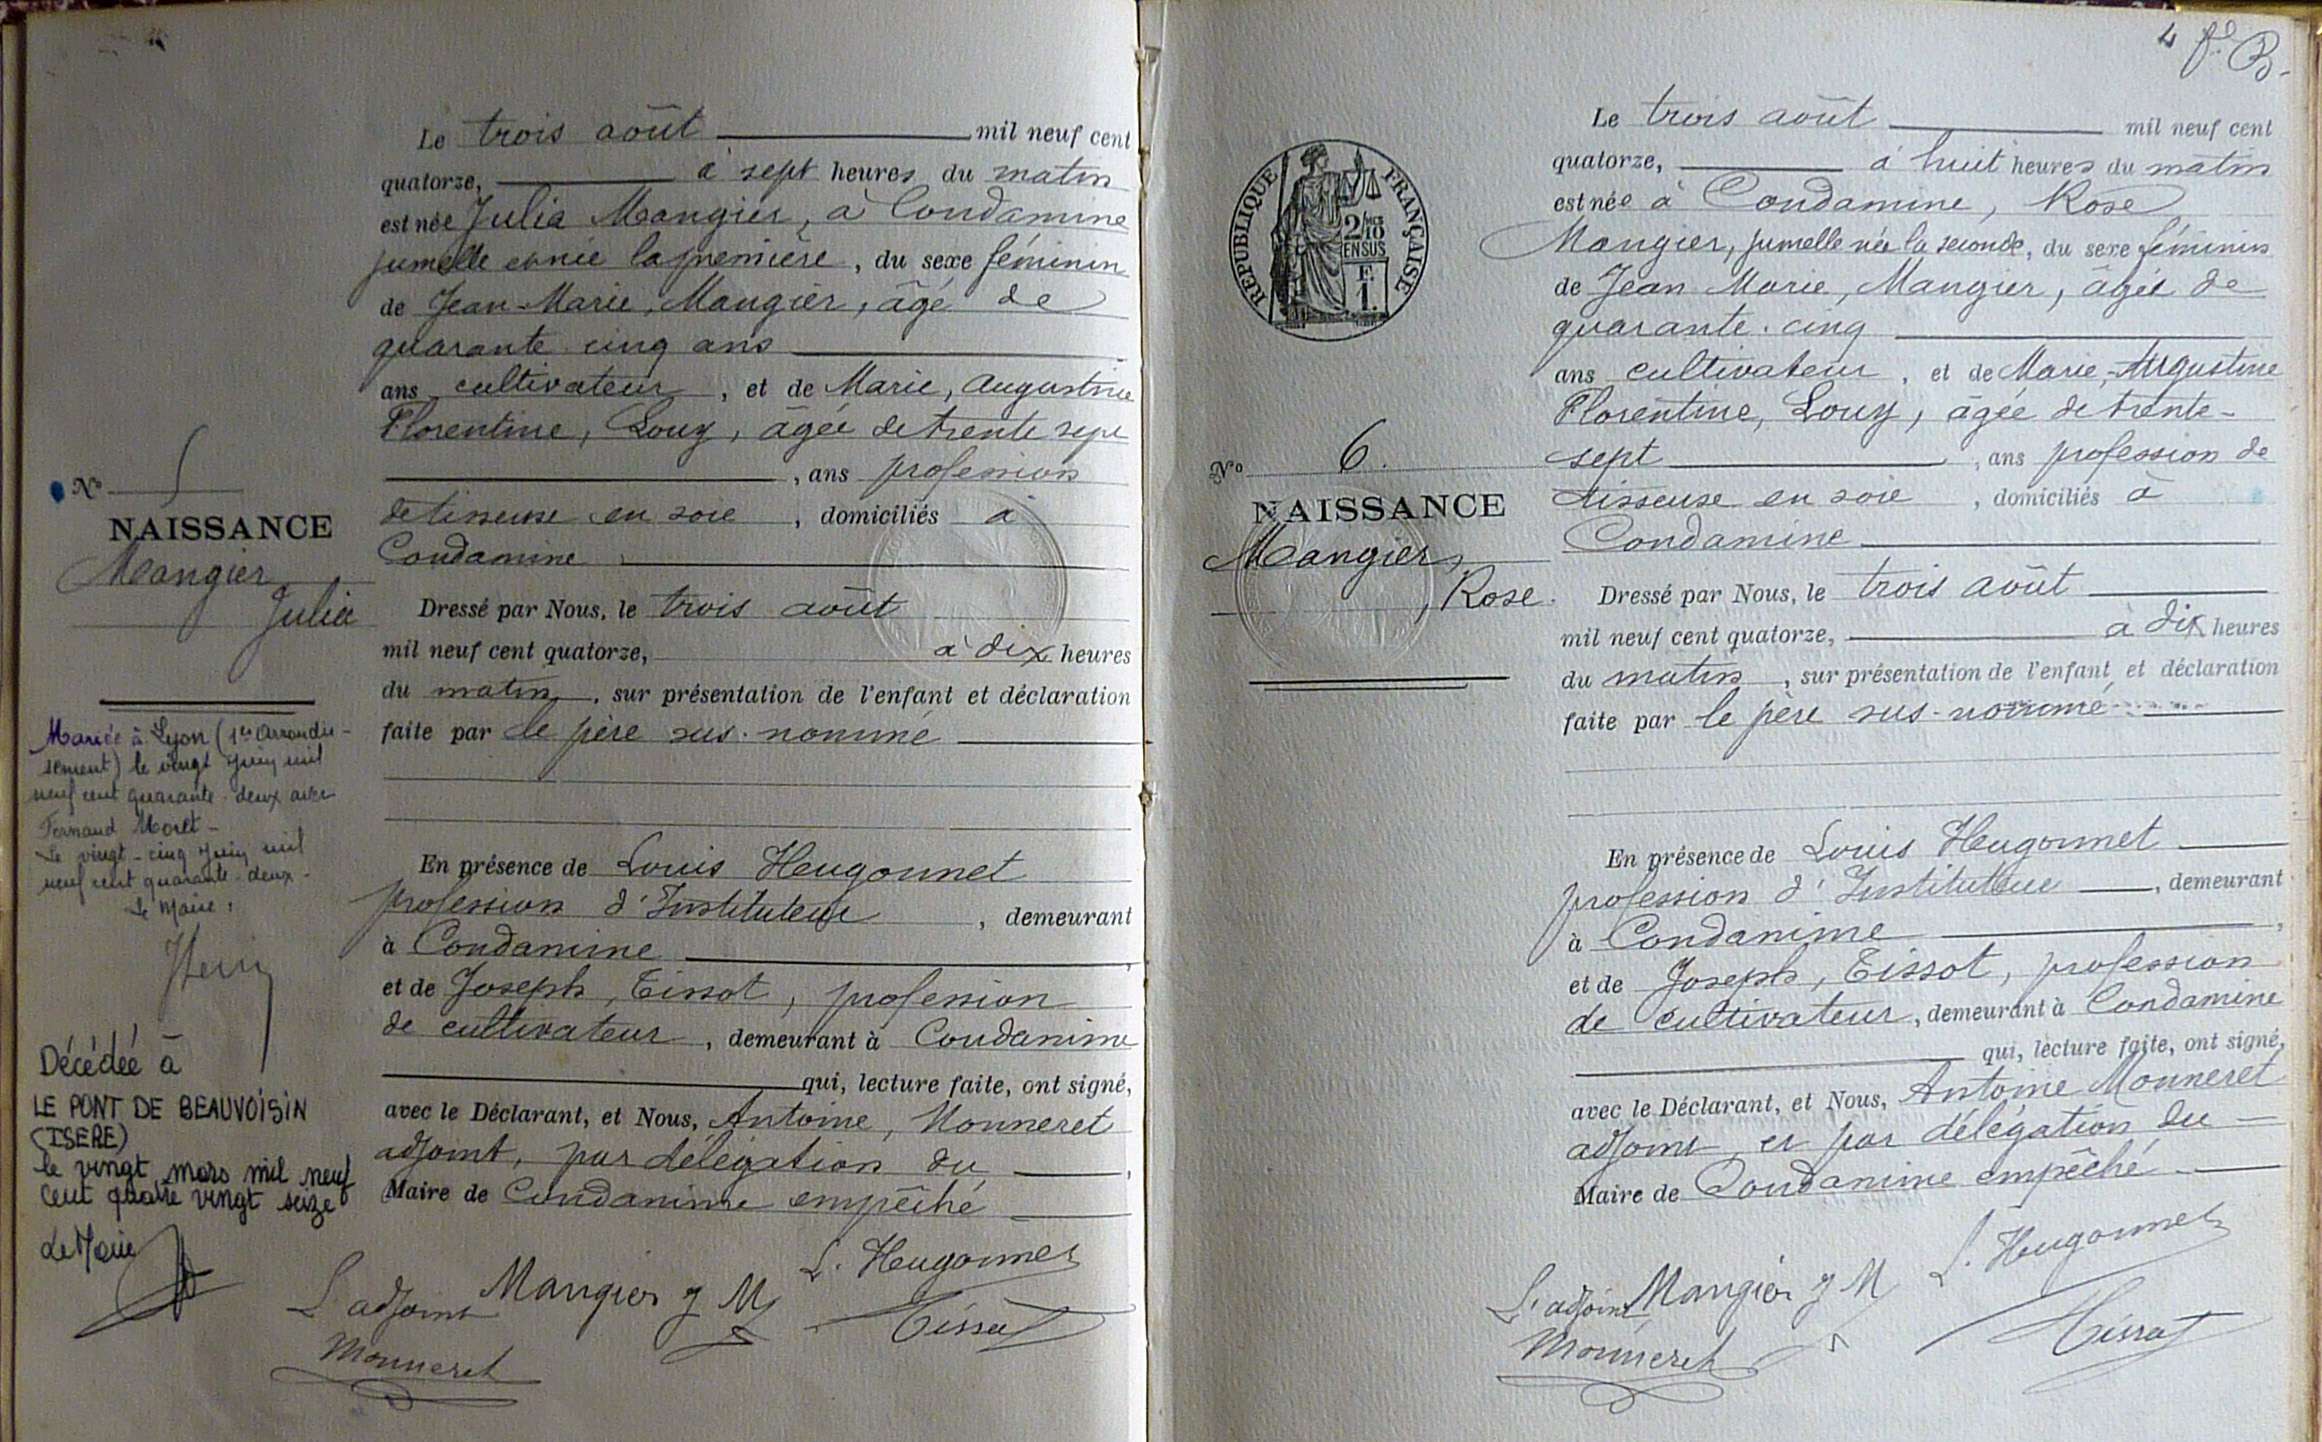 Le trois août mil neuf cent
quatorze, à sept heures du matin
est née Julia Mangier, à Condamine
jumelle et née la première, du sexe féminin
de Jean-Marie, Mangier, âgé de
quarante cinq ans
ans cultivateur, et de Marie, Augustine
Florentine, Louy, âgée de trente sept
, ans profession
de tisseuse en soie, domiciliés à
Condamine
Dressé par Nous, le trois août
mil neuf cent quatorze, à dix heures
du matin, sur présentation de l'enfant et déclaration
faite par le père sus-nommé
En présence de Louis Hugonnet
profession d'Instituteur, demeurant
à Condamine,
et de Joseph, Tissot, profession
de cultivateur, demeurant à Condamine
qui, lecture faite, ont signé,
avec le Déclarant, et Nous, Antoine, Monneret
adjoint, par délégation du,
Maire de Condamine empêché
L. Hugonnet
L'adjoint Mangier J M
Tissot
Monneret
N° 5
NAISSANCE
Mangier
Julia
Mariée à Lyon (1er Arrondis-
sement) le vingt juin mil
neuf cent quarante-deux avec
Fernand Morel-
Le vingt-cinq juin mil
neuf cent quarante-deux-
Le Maire:
Décédée à
LE PONT DE BEAUVOISIN
(ISERE)
le vingt mars mil neuf
cent quatre vingt seize
Le Maire
4
RÉPUBLIQUE FRANÇAISE
2/10MES
EN SUS
F.
1.
N° 6.
NAISSANCE
Mangier,
Rose.
Le trois août mil neuf cent
quatorze, à huit heures du matin
est née à Condamine, Rose
Mangier, jumelle née la seconde, du sexe féminin
de Jean Marie, Mangier, âgé de
quarante-cinq
ans cultivateur, et de Marie, Augustine
Florentine, Louy, âgée de trente-
sept, ans profession de
tisseuse en soie, domiciliés à
Condamine
Dressé par Nous, le trois août
mil neuf cent quatorze, à dix heures
du matin, sur présentation de l'enfant et déclaration
faite par le père sus-nommé
En présence de Louis Hugonnet
profession d'Instituteur, demeurant
à Condamine,
et de Joseph, Tissot, profession
de cultivateur, demeurant à Condamine
qui, lecture faite, ont signé,
avec le Déclarant, et Nous, Antoine Monneret
adjoint et par délégation du
Maire de Condamine empêché
L. Hugonnet
L'adjoint Mangier J M
Tissot
Monneret